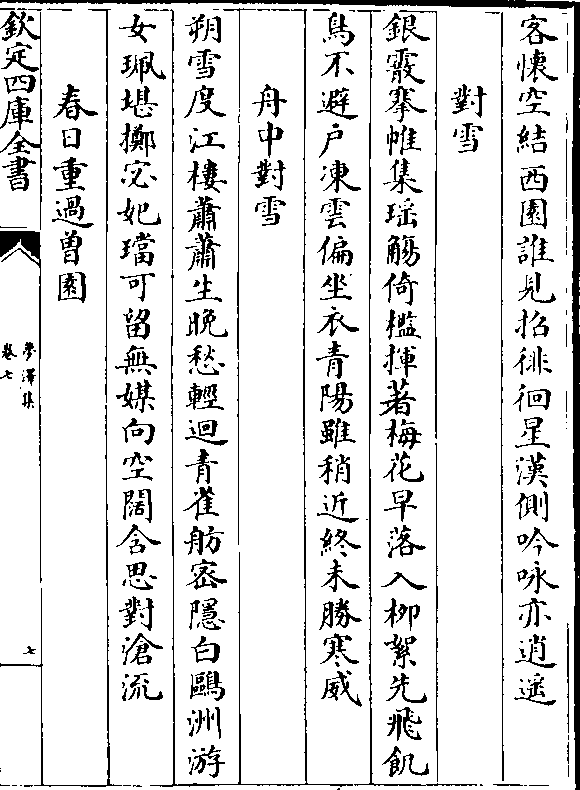 客懐空結西園誰見招徘徊星漢側吟咏亦逍遥
對雪
銀霰搴帷集瑶觴倚檻揮著梅花早落入柳絮先飛飢
鳥不避户凍雲偏坐衣青陽雖稍近終未勝寒威
舟中對雪
朔雪度江樓蕭蕭生晚愁輕迴青雀舫密隱白鷗洲游
女珮堪擲宓妃璫可留無媒向空闊含思對滄流
春日重過曽園
欽定四庫全書
夢澤集
卷七
七